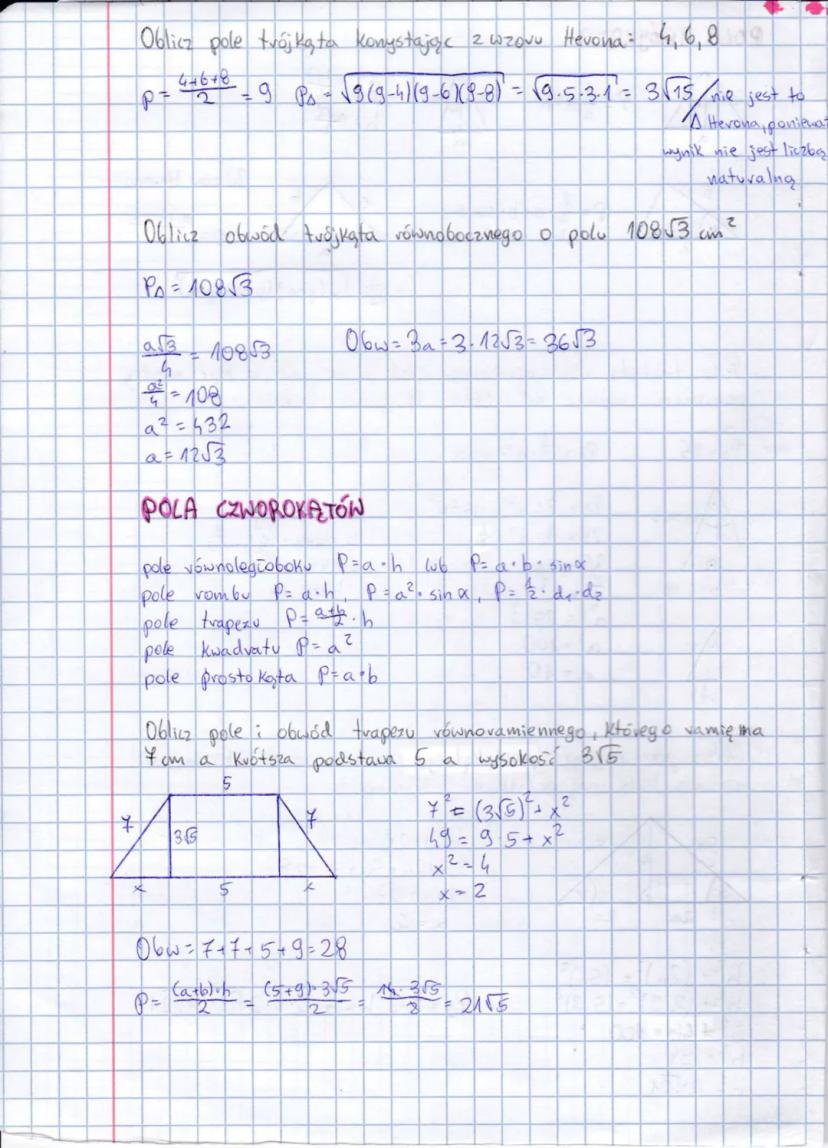 Oblicz pole trójkąta korzystając z wzoru Herona: 4, 6, 8
p = \frac{4+6+8}{2} = 9 P∆ = √(9(9-4)(9-6)(9-8)) = √(9·5·3·1) = 3√15 / nie jest to
∆ Herona, poniewa
wynik nie jest liczbą
naturalną
Oblicz obwód trójkąta równobocznego o polu 108√3 cm²
P∆ = 108√3
\frac{a√3}{4} = 108√3 Obw = 3a = 3 · 12√3 = 36√3
\frac{a²}{4} = 108
a² = 432
a = 12√3
POLA CZWOROKĄTÓW
pole równoległoboku P = a · h lub P = a · b · sinα
pole rombu P = a · h, P = a² · sinα, P = \frac{1}{2} · d₁ · d₂
pole trapezu P = \frac{a+b}{2} · h
pole kwadratu P = a²
pole prostokąta P = a · b
Oblicz pole i obwód trapezu równoramiennego, którego ramię ma
7 cm a krótsza podstawa 5 a wysokość 3√5
5
7 3√5 7
x 5 x
7² = (3√5)² + x²
49 = 9 · 5 + x²
x² = 4
x = 2
Obw = 7+7+5+9 = 28
P = \frac{(a+b)·h}{2} = \frac{(5+9)·3√5}{2} = \frac{14·3√5}{8} = 21√5